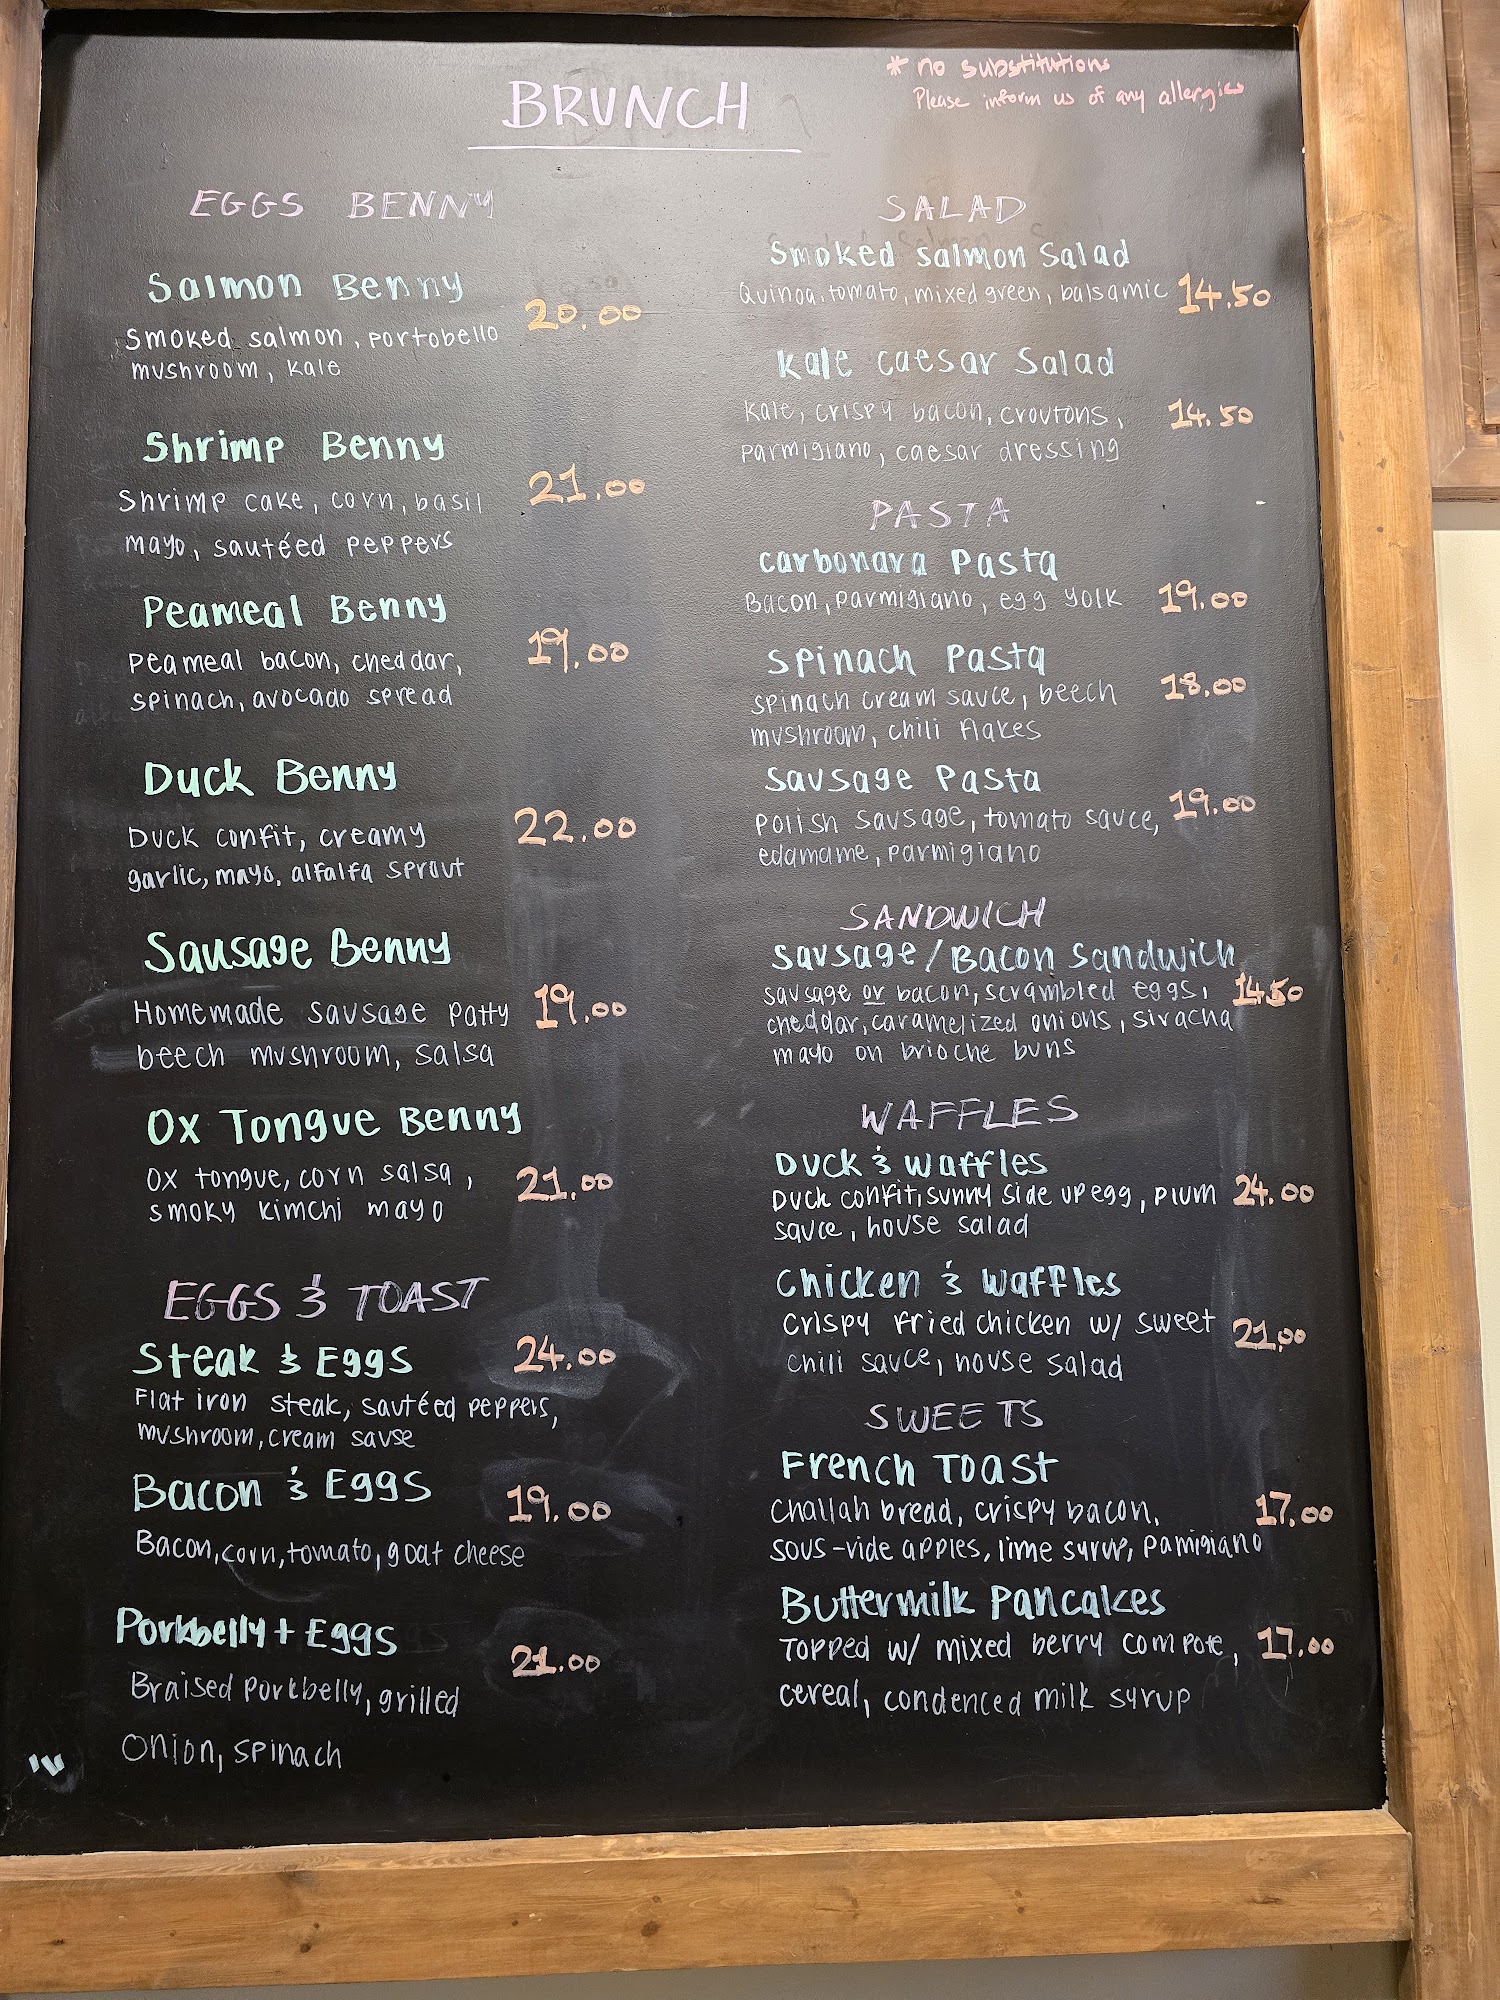 BRUNCH
* no substitutions
Please inform us of any allergies
EGGS BENNY
Salmon Benny
20.00
Smoked salmon, portobello
mushroom, kale
Shrimp Benny
21.00
Shrimp cake, corn, basil
mayo, sautéed peppers
Peameal Benny
19.00
Peameal bacon, cheddar,
spinach, avocado spread
Duck Benny
22.00
Duck confit, creamy
garlic, mayo, alfalfa sprout
Sausage Benny
Homemade sausage patty 19.00
beech mushroom, salsa
Ox Tongue Benny
Ox tongue, corn salsa, 21.00
smoky kimchi mayo
EGGS & TOAST
Steak & Eggs 24.00
Flat iron steak, sautéed peppers,
mushroom, cream sause
Bacon & Eggs 19.00
Bacon, corn, tomato, goat cheese
Porkbelly + Eggs
21.00
Braised porkbelly, grilled
onion, spinach
SALAD
Smoked Salmon Salad
Quinoa, tomato, mixed green, balsamic 14.50
Kale Caesar Salad
Kale, crispy bacon, croutons, 14.50
parmigiano, caesar dressing
PASTA
Carbonara Pasta
Bacon, parmigiano, egg yolk 19.00
Spinach Pasta
spinach cream sauce, beech 18.00
mushroom, chili flakes
Sausage Pasta
polish sausage, tomato sauce, 19.00
edamame, parmigiano
SANDWICH
Sausage/Bacon Sandwich
sausage or bacon, scrambled eggs, 14.50
cheddar, caramelized onions, siracha
mayo on brioche buns
WAFFLES
Duck & Waffles
Duck confit, sunny side up egg, plum 24.00
sauce, house salad
Chicken & Waffles
Crispy fried chicken w/ sweet 21.00
chili sauce, house salad
SWEETS
French Toast
Challah bread, crispy bacon, 17.00
sous-vide apples, lime syrup, pamigiano
Buttermilk Pancakes
Topped w/ mixed berry compote, 17.00
cereal, condenced milk syrup